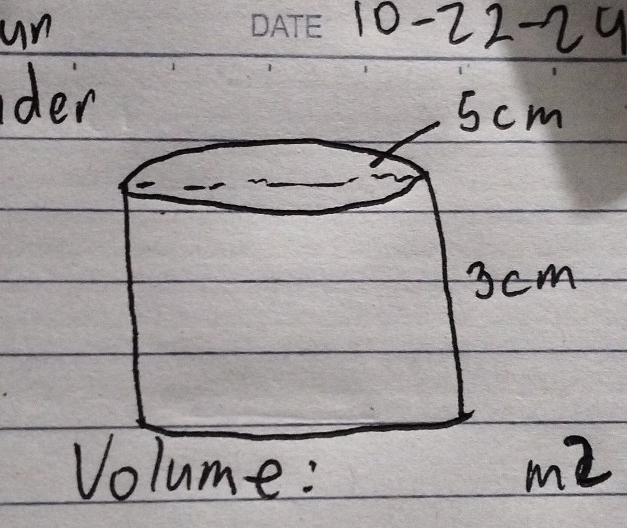 un DATE 10-22-24
der
5cm
3cm
Volume: m2